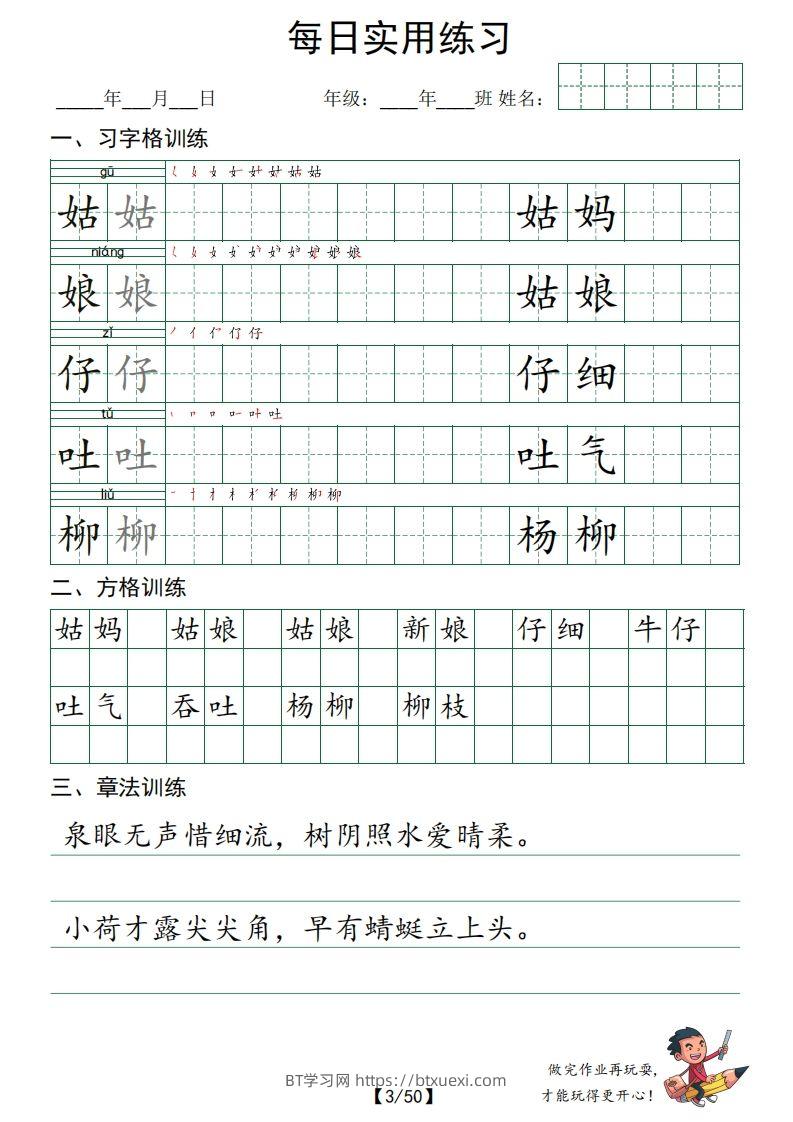 每日实用练习
_____年___月___日 年级：____年____班 姓名：
一、习字格训练
gū
姑 姑 姑 妈
niáng
娘 娘 姑 娘
zǐ
仔 仔 仔 细
tǔ
吐 吐 吐 气
liǔ
柳 柳 杨 柳
二、方格训练
姑 妈 姑 娘 姑 娘 新 娘 仔 细 牛 仔
吐 气 吞 吐 杨 柳 柳 枝
三、章法训练
泉眼无声惜细流，树阴照水爱晴柔。
小荷才露尖尖角，早有蜻蜓立上头。
做完作业再玩耍，
才能玩得更开心！
BT学习网 https://btxuexi.com
【3/50】